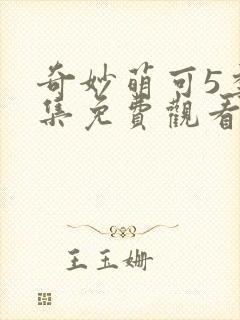 奇妙萌可5季
集免費觀看
王玉姍